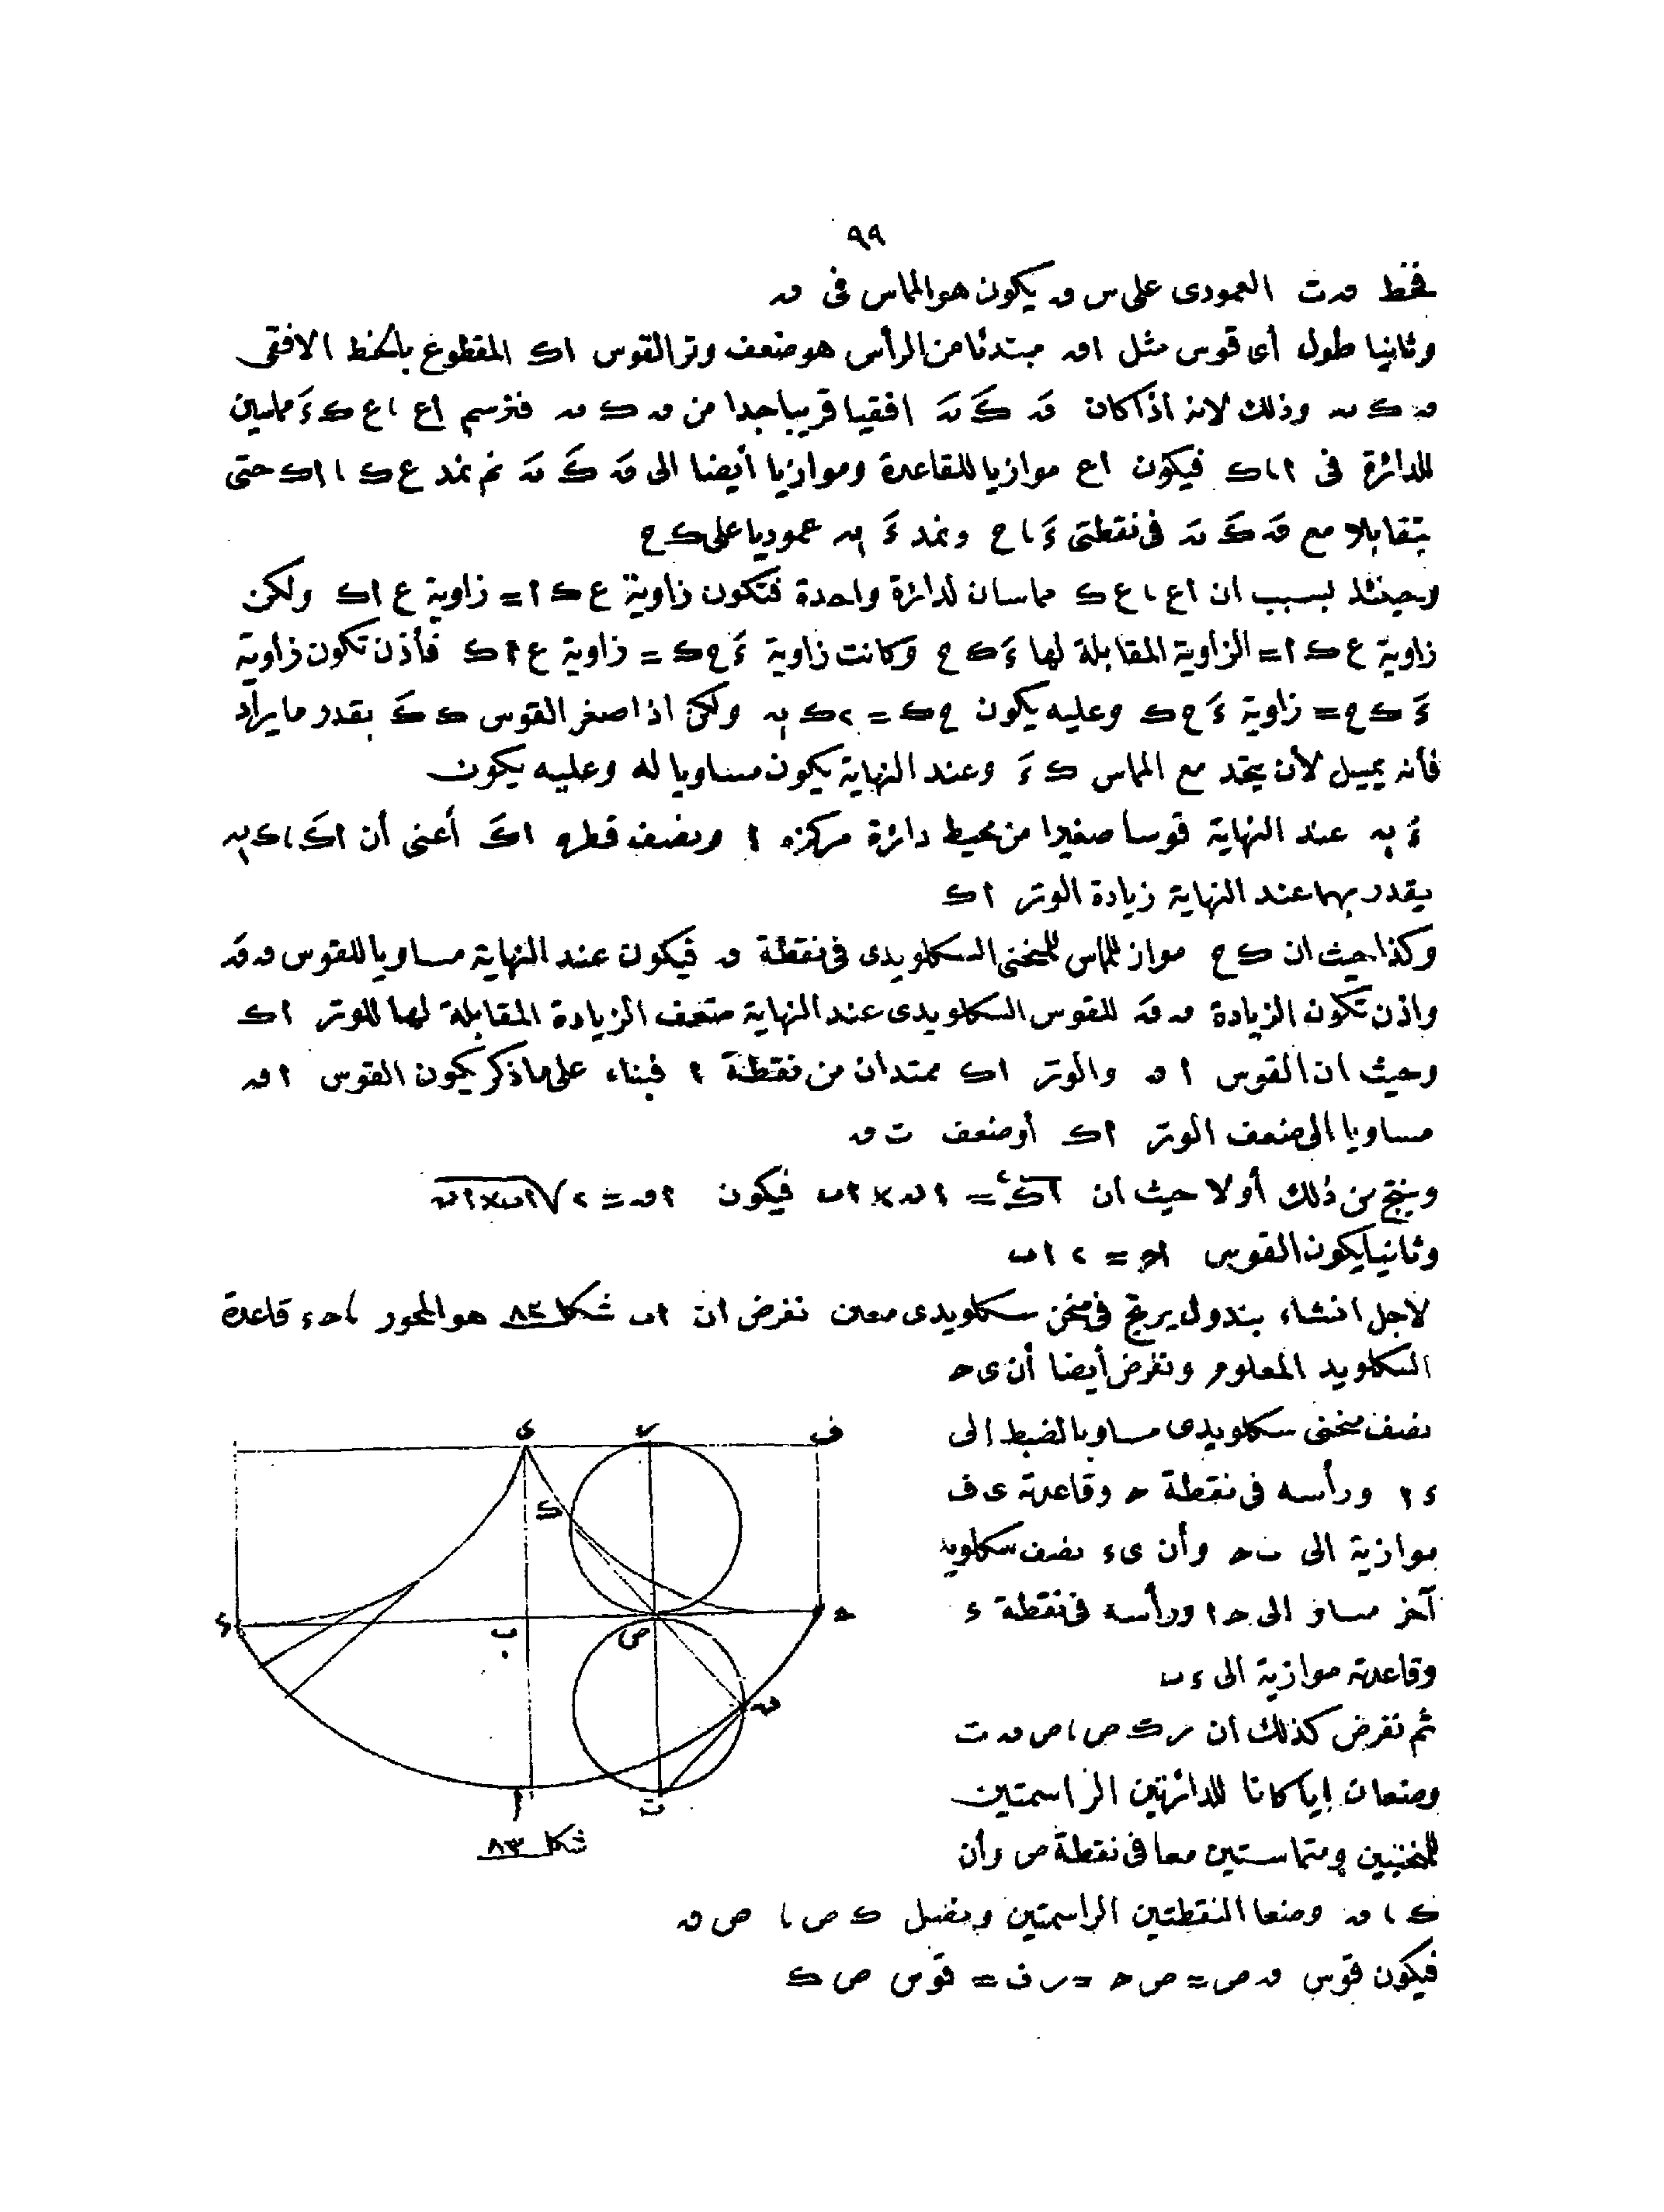 ٩٩
فخط ںہت العمودى على س ںہ يكون هو المماس فى ںہ
وثانيا طول أى قوس مثل اںہ مبتدئا من الرأس هو ضعف وتر القوس اک المقطوع بالخط الافقى
وذلك لانه اذا كان افقيا قريبا جدا من فنرسم اع ، ع ک ءَ مماسين
للدائرة فى ا ، ک فيكون اع موازيا للقاعدة وموازيا أيضا الى ثم نمد ع ک ، اک حتى
يتقابلا مع فى نقطتى ءَ ، ح ونمد عموديا على ک ح
وحينئذ بسبب ان اع ، ع ک مماسان لدائرة واحدة فتكون زاوية ع ک ا = زاوية ع اک ولكن
زاوية ع ک ا = الزاوية المقابلة لها ءَ ک ح وكانت زاوية ءَ ح ک = زاوية ع ا ک فأذن تكون زاوية
ءَ ک ح = زاوية ءَ ح ک وعليه يكون ح ک = ٢ ک ولكن اذا صغر القوس ک کَ بقدر ما يراد
فأنه يميل لأن يتحد مع المماس ک ءَ وعند النهاية يكون مساويا له وعليه يكون
عند النهاية قوسا صغيرا من محيط دائرة مركزه ا ونصف قطره اکَ أعنى أن
يقدر بهما عند النهاية زيادة الوتر ا ک
وكذا حيث ان ک ح مواز للماس للمنحنى السكلويدى فى نقطة ںہ فيكون عند النهاية مساويا للقوس
واذن تكون الزيادة للقوس السكلويدى عند النهاية ضعف الزيادة المقابلة لها للوتر اک
وحيث ان القوس ا ںہ والوتر اک ممتدان من نقطة ا فبناء على ما ذكر يكون القوس ا ںہ
مساويا الى ضعف الوتر اک أو ضعف ت ںہ
وينتج من ذلك أولا حيث ان فيكون
وثانيا يكون القوس اح = ٢ اب
لاجل انشاء بندول يرتج فى منحن سكلويدى معين نفرض ان اب شكل ٨٣ هو المحور ، حء قاعدة
السكلويد المعلوم ونفرض أيضا أن ى ح
نصف منحنى سكلويدى مساويا لضبط الى
ء ا ورأسه فى نقطة ح وقاعدته ى ف
موازية الى ب ح وأن ىء نصف سكلويد
آخر مساو الى ح ا ورأسه فى نقطة ء
وقاعدته موازية الى ء ب
ثم نفرض كذلك ان ر ک ص ، ص ںہ ت
وضعان إيا كانا للدائرتين الراسمتين
للمنحنيين ومتماستين معا فى نقطة ص وأن
ک ، ںہ وضعا النقطتين الراسمتين ونصل ک ص ، ص ںہ
فيكون قوس ںہ ص = ص ح = ر ف = قوس ص ک
ى ر ف
ک
ء ب ص ح
ںہ
ا ت
شكل ٨٣